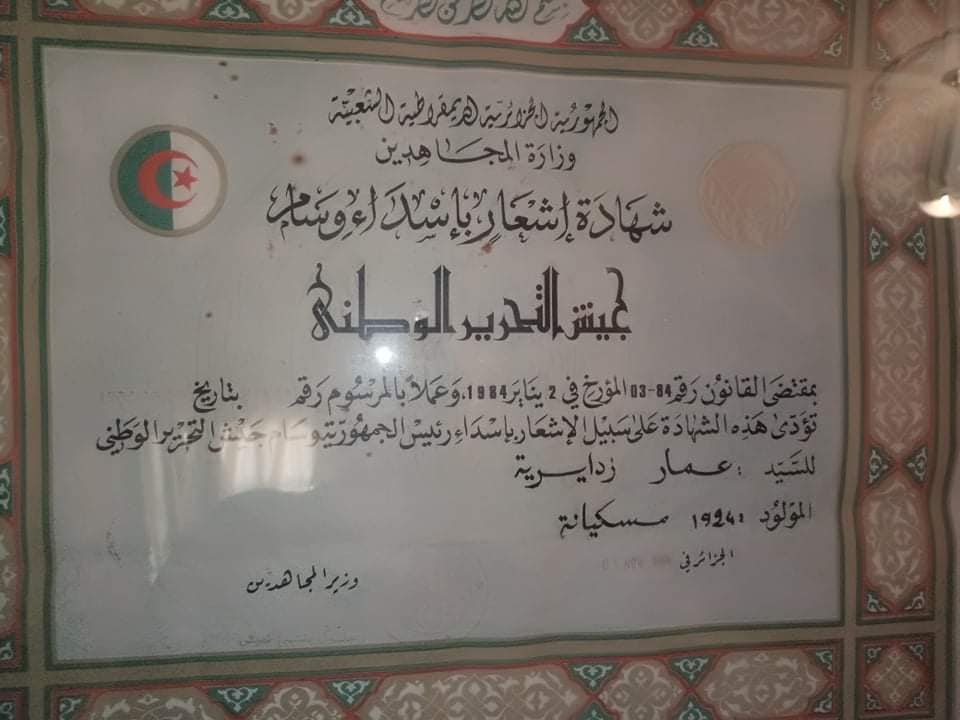 الجمهورية الجزائرية الديمقراطية الشعبية
وزارة المجاهدين
شهادة إشعار بإسداء وسام
جيش التحرير الوطني
بمقتضى القانون رقم 84-03 المؤرخ في 2 يناير 1984، وعملا بالمرسوم رقم بتاريخ
تؤدى هذه الشهادة على سبيل الإشعار بإسداء رئيس الجمهورية وسام جيش التحرير الوطني
للسيد : عمار زدايرية
المولود : 1924 مسكيانة
الجزائر في
وزير المجاهدين